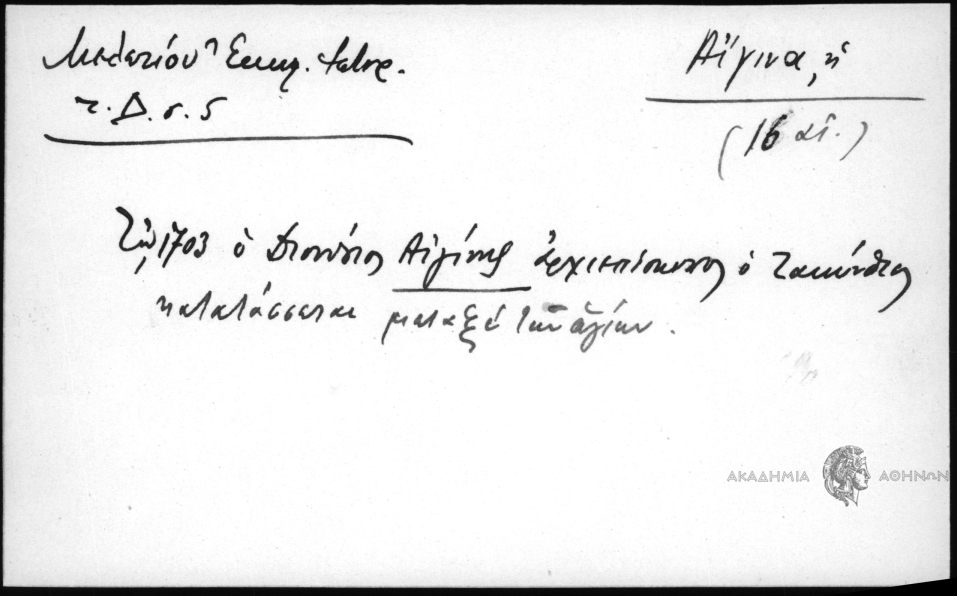 Μελετίου Εκκλ. Ιστορ.
τ. Δ. σ. 5
Αἴγινα, ἡ
(16 αἰ.)
Τῷ 1703 ὁ Διονύσιος Αἰγίνης ἀρχιεπίσκοπος ὁ Ζακύνθιος
κατατάσσεται μεταξὺ τῶν ἁγίων.
ΑΚΑΔΗΜΙΑ ΑΘΗΝΩΝ